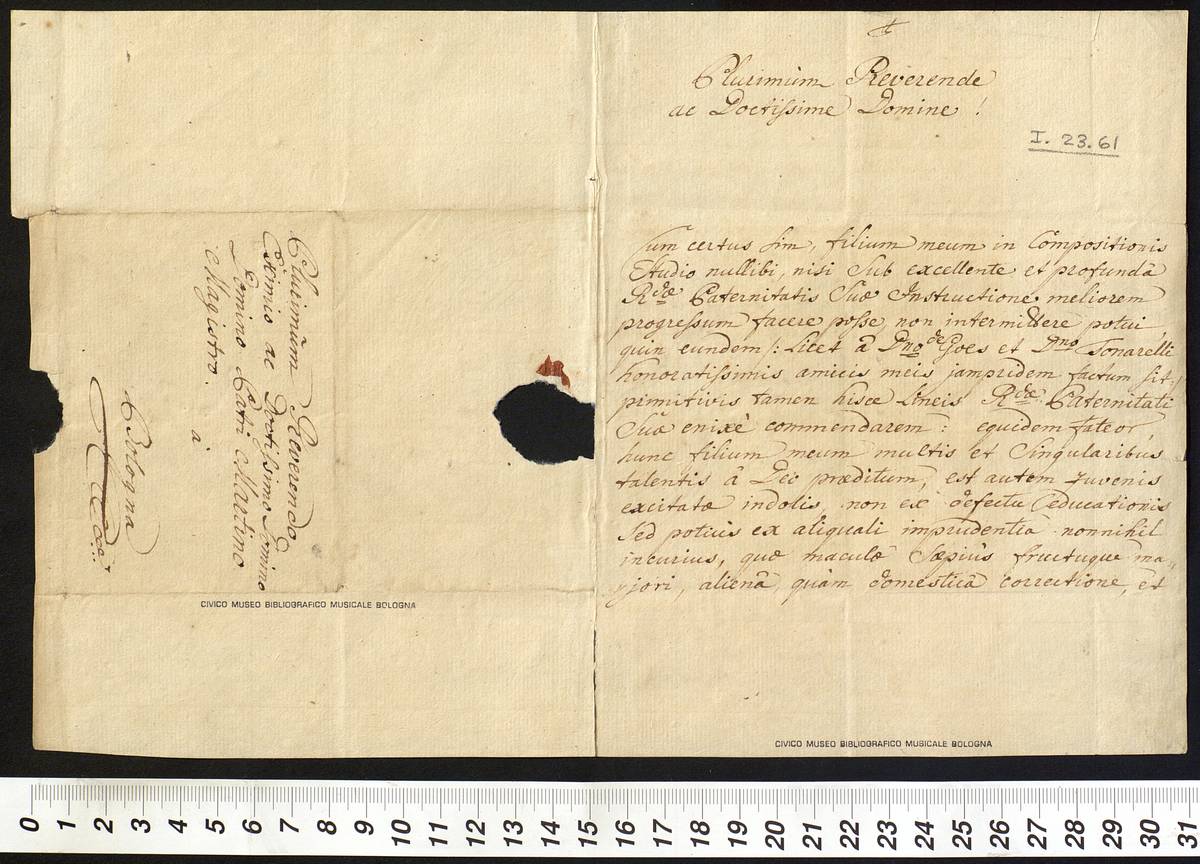 Plurimùm Reverende
ac Doctissime Domine!
I. 23. 61
Cum certus sim, filium meum in Compositionis
Studio nullibi, nisi sub excellente et profundâ
Rdæ Paternitatis Suæ Instructione meliorem
progressum facere posse, non intermittere potui
quin eundem /: Licet â Dno de Goes et Dno Tonarelli
honoratissimis amicis meis jampridem factum sit :/
primitivis tamen hisce Lineis Rdæ Paternitati
Suæ enixè commendarem: equidem fateor,
hunc filium meum multis et Singularibus
talentis â Deo præditum, est autem Juvenis
excitatæ indolis, non ex defectu educationis
Sed potius ex aliquali imprudentiâ nonnihil
incurius, quæ macula Sæpius fructuque ma,,
jori, alienâ, quàm domesticâ correctione, et
CIVICO MUSEO BIBLIOGRAFICO MUSICALE BOLOGNA
Plurimùm Reverendo
Eximio ac Doctissimo Domino
Domino Patri Martino
Magistro.
à
Bologna
CIVICO MUSEO BIBLIOGRAFICO MUSICALE BOLOGNA
0 1 2 3 4 5 6 7 8 9 10 11 12 13 14 15 16 17 18 19 20 21 22 23 24 25 26 27 28 29 30 31